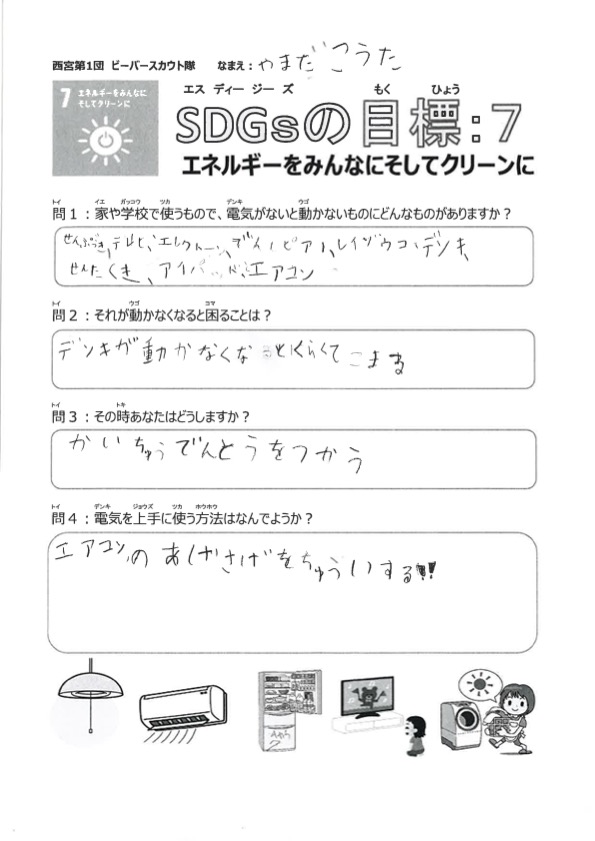 西宮第1団 ビーバースカウト隊 なまえ：やまだ こうた
7 エネルギーをみんなに
そしてクリーンに
エス ディー ジー ズ もく ひょう
SDGsの目標：7
エネルギーをみんなにそしてクリーンに
トイ イエ ガッコウ ツカ デンキ ウゴ
問1：家や学校で使うもので、電気がないと動かないものにどんなものがありますか？
せんぷうき、テレビ、エレクトーン、でんしピアノ、レイゾウコ、デンキ、
せんたくき、アイパッド、エアコン
トイ ウゴ コマ
問2：それが動かなくなると困ることは？
デンキが動かなくなるとくらくてこまる
トイ トキ
問3：その時あなたはどうしますか？
かいちゅうでんとうをつかう
トイ デンキ ジョウズ ツカ ホウホウ
問4：電気を上手に使う方法はなんでようか？
エアコンのあげさげをちゅういする!!